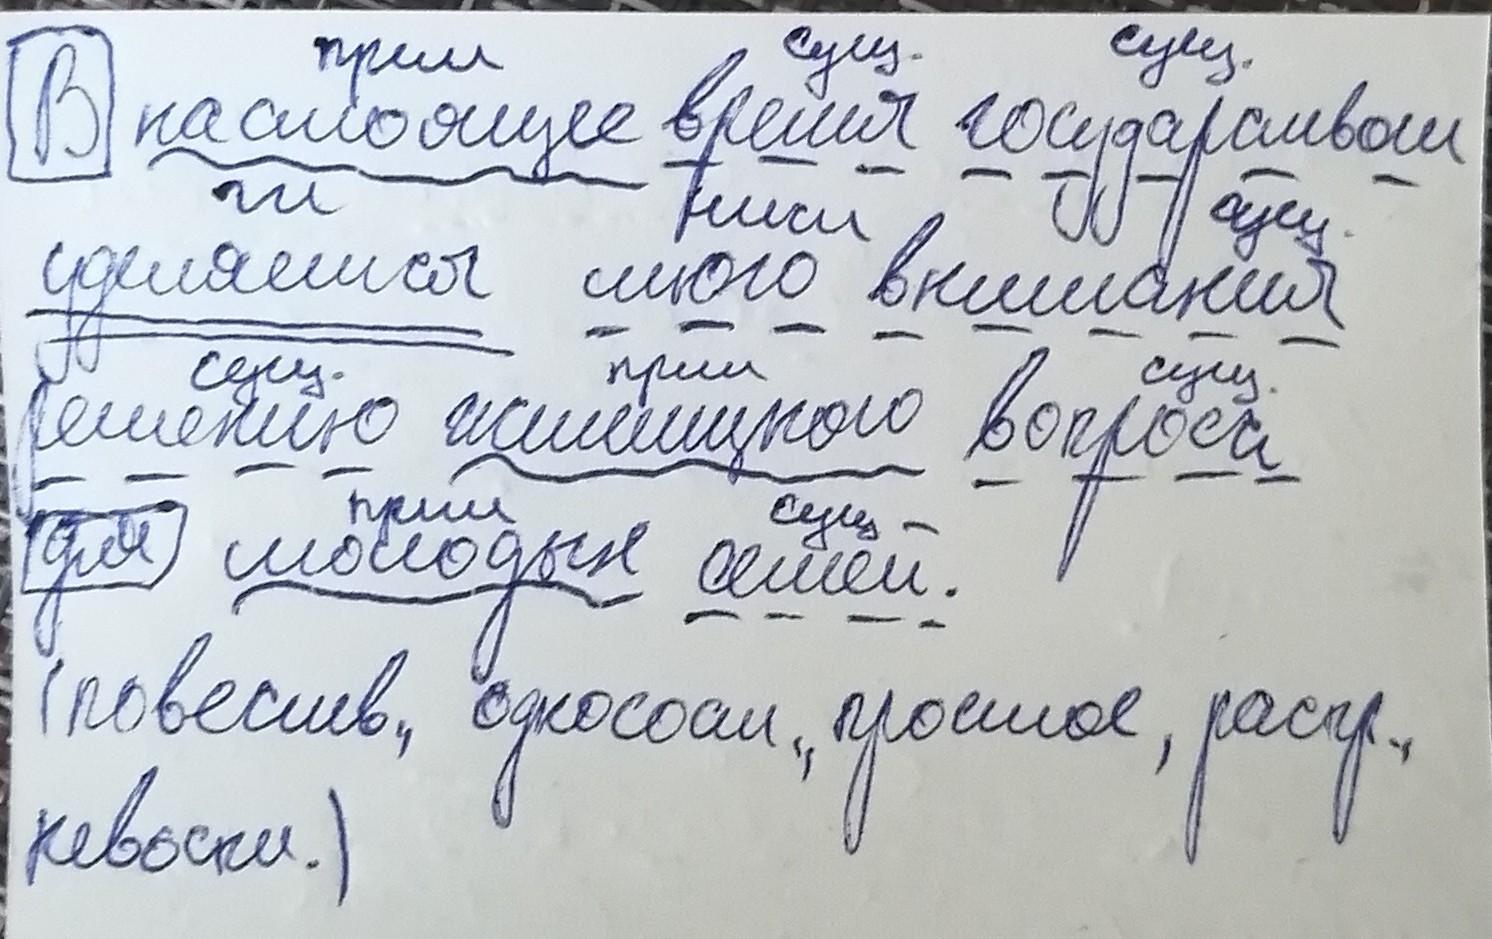 прил сущ. сущ.
В настоящее время государством
гл нисл сущ.
уделяется много внимания
сущ. прил сущ.
решению жилищного вопроса
прил сущ
для молодых семей.
(повеств., односост., простое, распр.,
невоскл.)